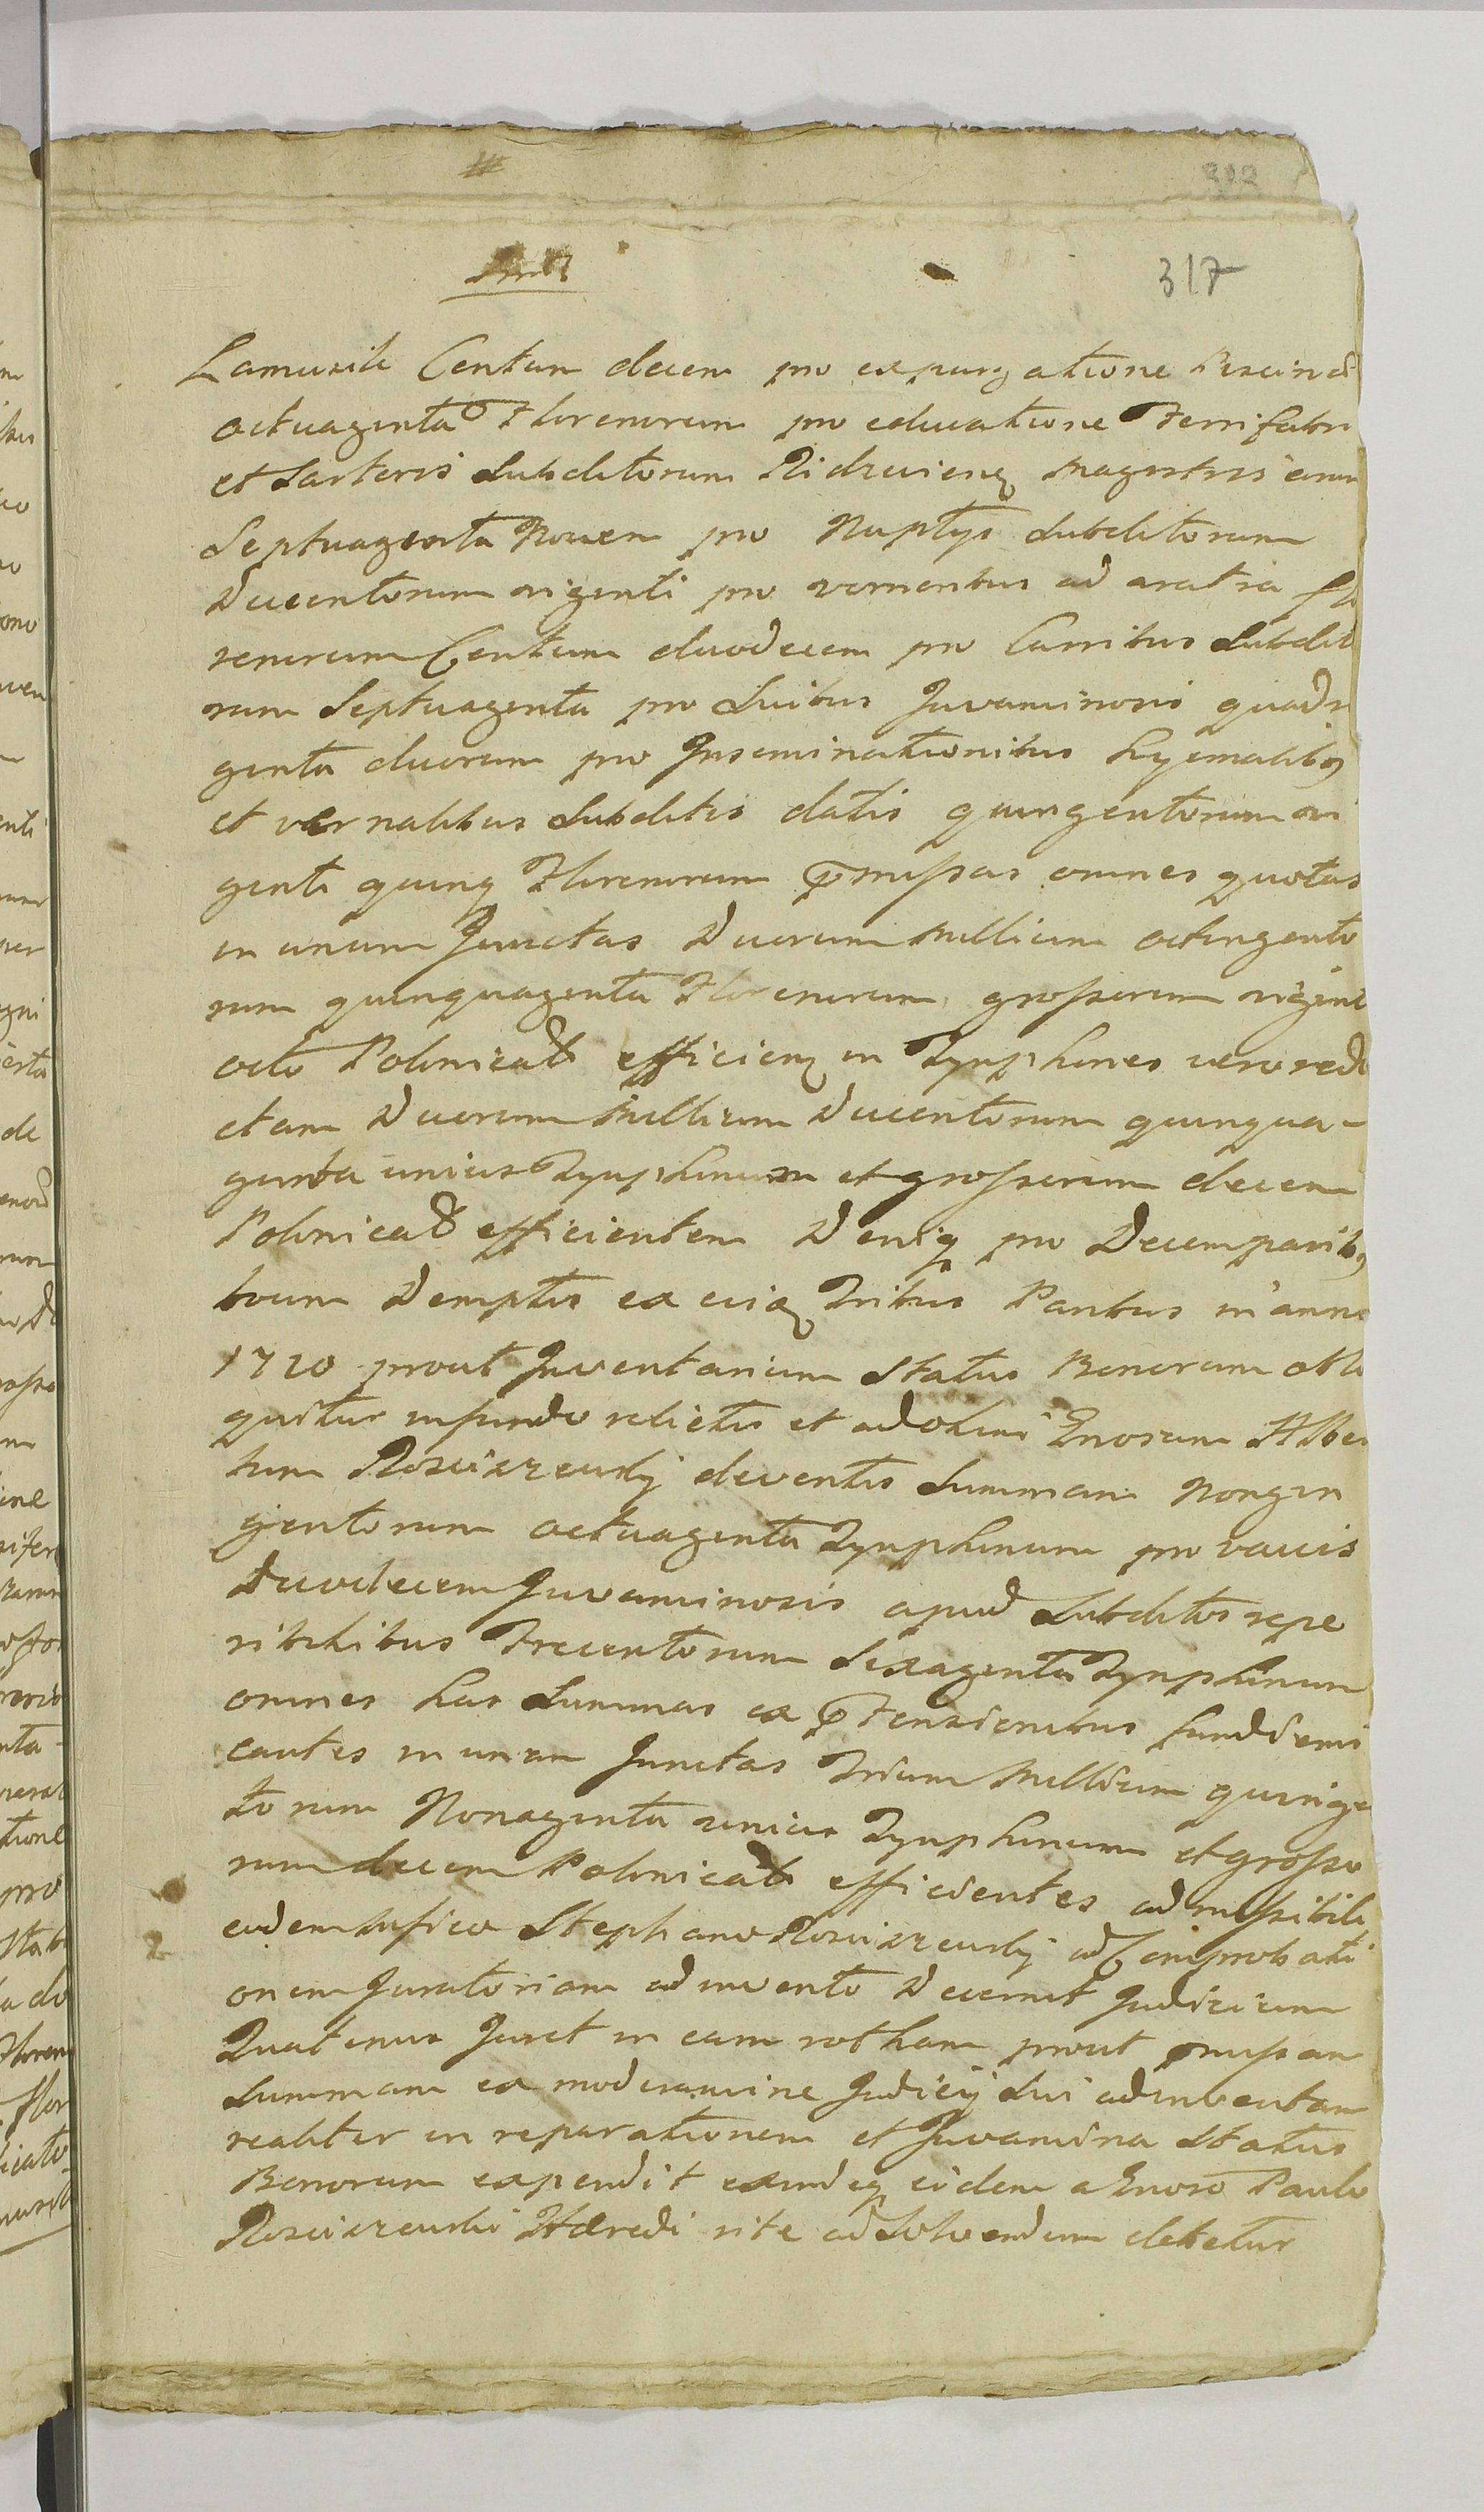 317
Lamusile Centum decem pro expurgatione Piscinæ
octuaginta Florenorum pro educatione Ferrifabri
et Sartoris Subditorum Magistris eorum
Septuaginta Novem pro Nuptys Subditorum
Ducentorum viginti pro vomeribus ad aratra flo
renorum Centum duodecem pro Curribus Subdito
rum Septuaginta pro Suibus Juvaminosis quadra
ginta duorum pro Inseminationibus hyemalibq
et vernalibus Subditis datis quingentorum vi
ginti quinq Florenorum pmissas omnes quotas
in unum Junctas Duorum Millium octingento
rum quinquaginta Florenorum grossorum viginti
octo Polonical efficienq in Tynphones vero redu
ctam Duorum Millium Ducentorum quinqua-
ginta unius Tynphonum et grossorum decem
Polonical efficientem Deniq pro Decem paribq
boum Demptis ex eisq Tribus Paribus in anno
1720 prout Inventarium Status Bonorum oblo
quitur in fundo relictis et ad olim Gnosum Alber
tum Rosciszewskj deventis Summam Nongin
gentorum octuaginta Tynphonum pro vaccis
Duodecem Juvaminosis apud Subditos repe
ribilibus Trecentorum Sexaginta Tynphonum
omnes has Summas ex ptensionibus fundi emi
cantes in unam Junctas Trium Millium quinge
torum Nonaginta unius Tynphonum et grosso
rum decem Polonical efficientes admissibili
eidem Mfico Stephano Rosciszewskj ad Comprobati
onem Juratoriam adinvento Decernit Judicium
Quatenus Juret in eam rotham prout pmissam
Summam ex moderamine Judicij Sui adinventam
realiter in reparationem et Juvamina Status
Bonorum expendit eamdeq eidem a Gnoso Paulo
Rosciszewski Hæredi rite ad Solvendum debetur